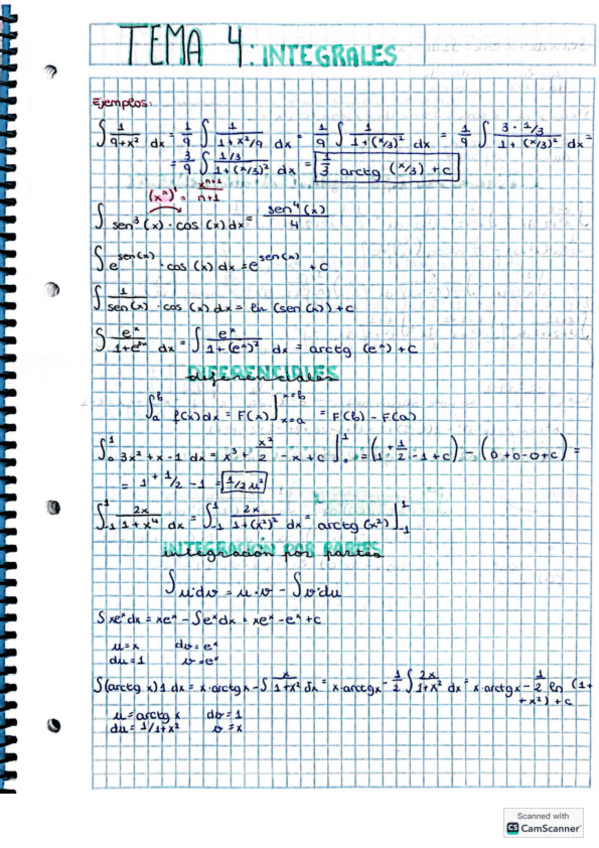 TEMA 4: INTEGRALES
Ejemplos:
∫ 1/(9+x²) dx = 1/9 ∫ 1/(1+x²/9) dx = 1/9 ∫ 1/(1+(x/3)²) dx = 1/9 ∫ (3·1/3)/(1+(x/3)²) dx =
= 3/9 ∫ (1/3)/(1+(x/3)²) dx = 1/3 arctg (x/3) + c
(xⁿ)' = xⁿ⁺¹/(n+1)
∫ sen³(x)·cos(x) dx = sen⁴(x)/4
∫ e^sen(x) · cos(x) dx = e^sen(x) + c
∫ 1/sen(x) · cos(x) dx = ln (sen(x)) + c
∫ eˣ/(1+e²ˣ) dx = ∫ eˣ/(1+(eˣ)²) dx = arctg (eˣ) + c
DIFERENCIALES
∫ₐᵇ f(x) dx = F(x) ]ₓ₌ₐˣ⁼ᵇ = F(b) - F(a)
∫₀¹ 3x² + x - 1 dx = x³ + x²/2 - x + c |₀¹ = (1 + 1/2 - 1 + c) - (0 + 0 - 0 + c) =
= 1 + 1/2 - 1 = 1/2 u²
∫₋₁¹ 2x/(1+x⁴) dx = ∫₋₁¹ 2x/(1+(x²)²) dx = arctg (x²) |₋₁¹
INTEGRACIÓN POR PARTES
∫ u·dv = u·v - ∫ v·du
∫ xeˣ dx = xeˣ - ∫ eˣ dx = xeˣ - eˣ + c
u = x dv = eˣ
du = 1 v = eˣ
∫ (arctg x) 1 dx = x·arctg x - ∫ x/(1+x²) dx = x·arctg x - 1/2 ∫ 2x/(1+x²) dx = x·arctg x - 1/2 ln (1+
+x²) + c
u = arctg x dv = 1
du = 1/1+x² v = x
Scanned with
CS CamScanner